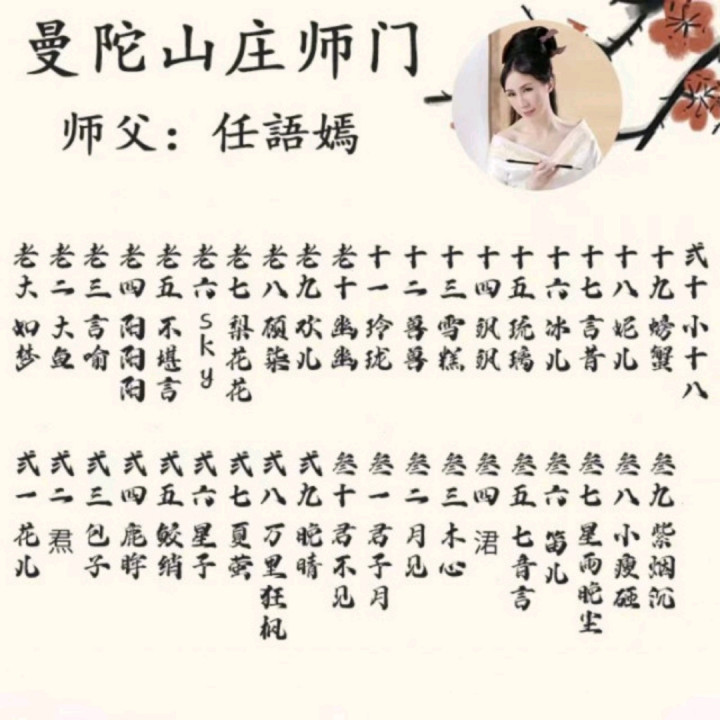 曼陀山庄师门
师父：任語嫣
老大如梦
老二大鱼
老三言喻
老四阳阳阳
老五不堪言
老六sky
老七梨花花
老八顾柒
老九欢儿
老十幽幽
十一玲珑
十二兽兽
十三雪糕
十四飒飒
十五琉璃
十六冰儿
十七言昔
十八妮儿
十九螃蟹
弍十小十八
弍一花儿
弍二焄
弍三包子
弍四鹿眸
弍五鲛绡
弍六星子
弍七夏萤
弍八万里狂枫
弍九晚晴
叁十君不见
叁一君子月
叁二月见
叁三木心
叁四涒
叁五七音言
叁六笛儿
叁七星雨晚尘
叁八小瘦砸
叁九紫烟沉